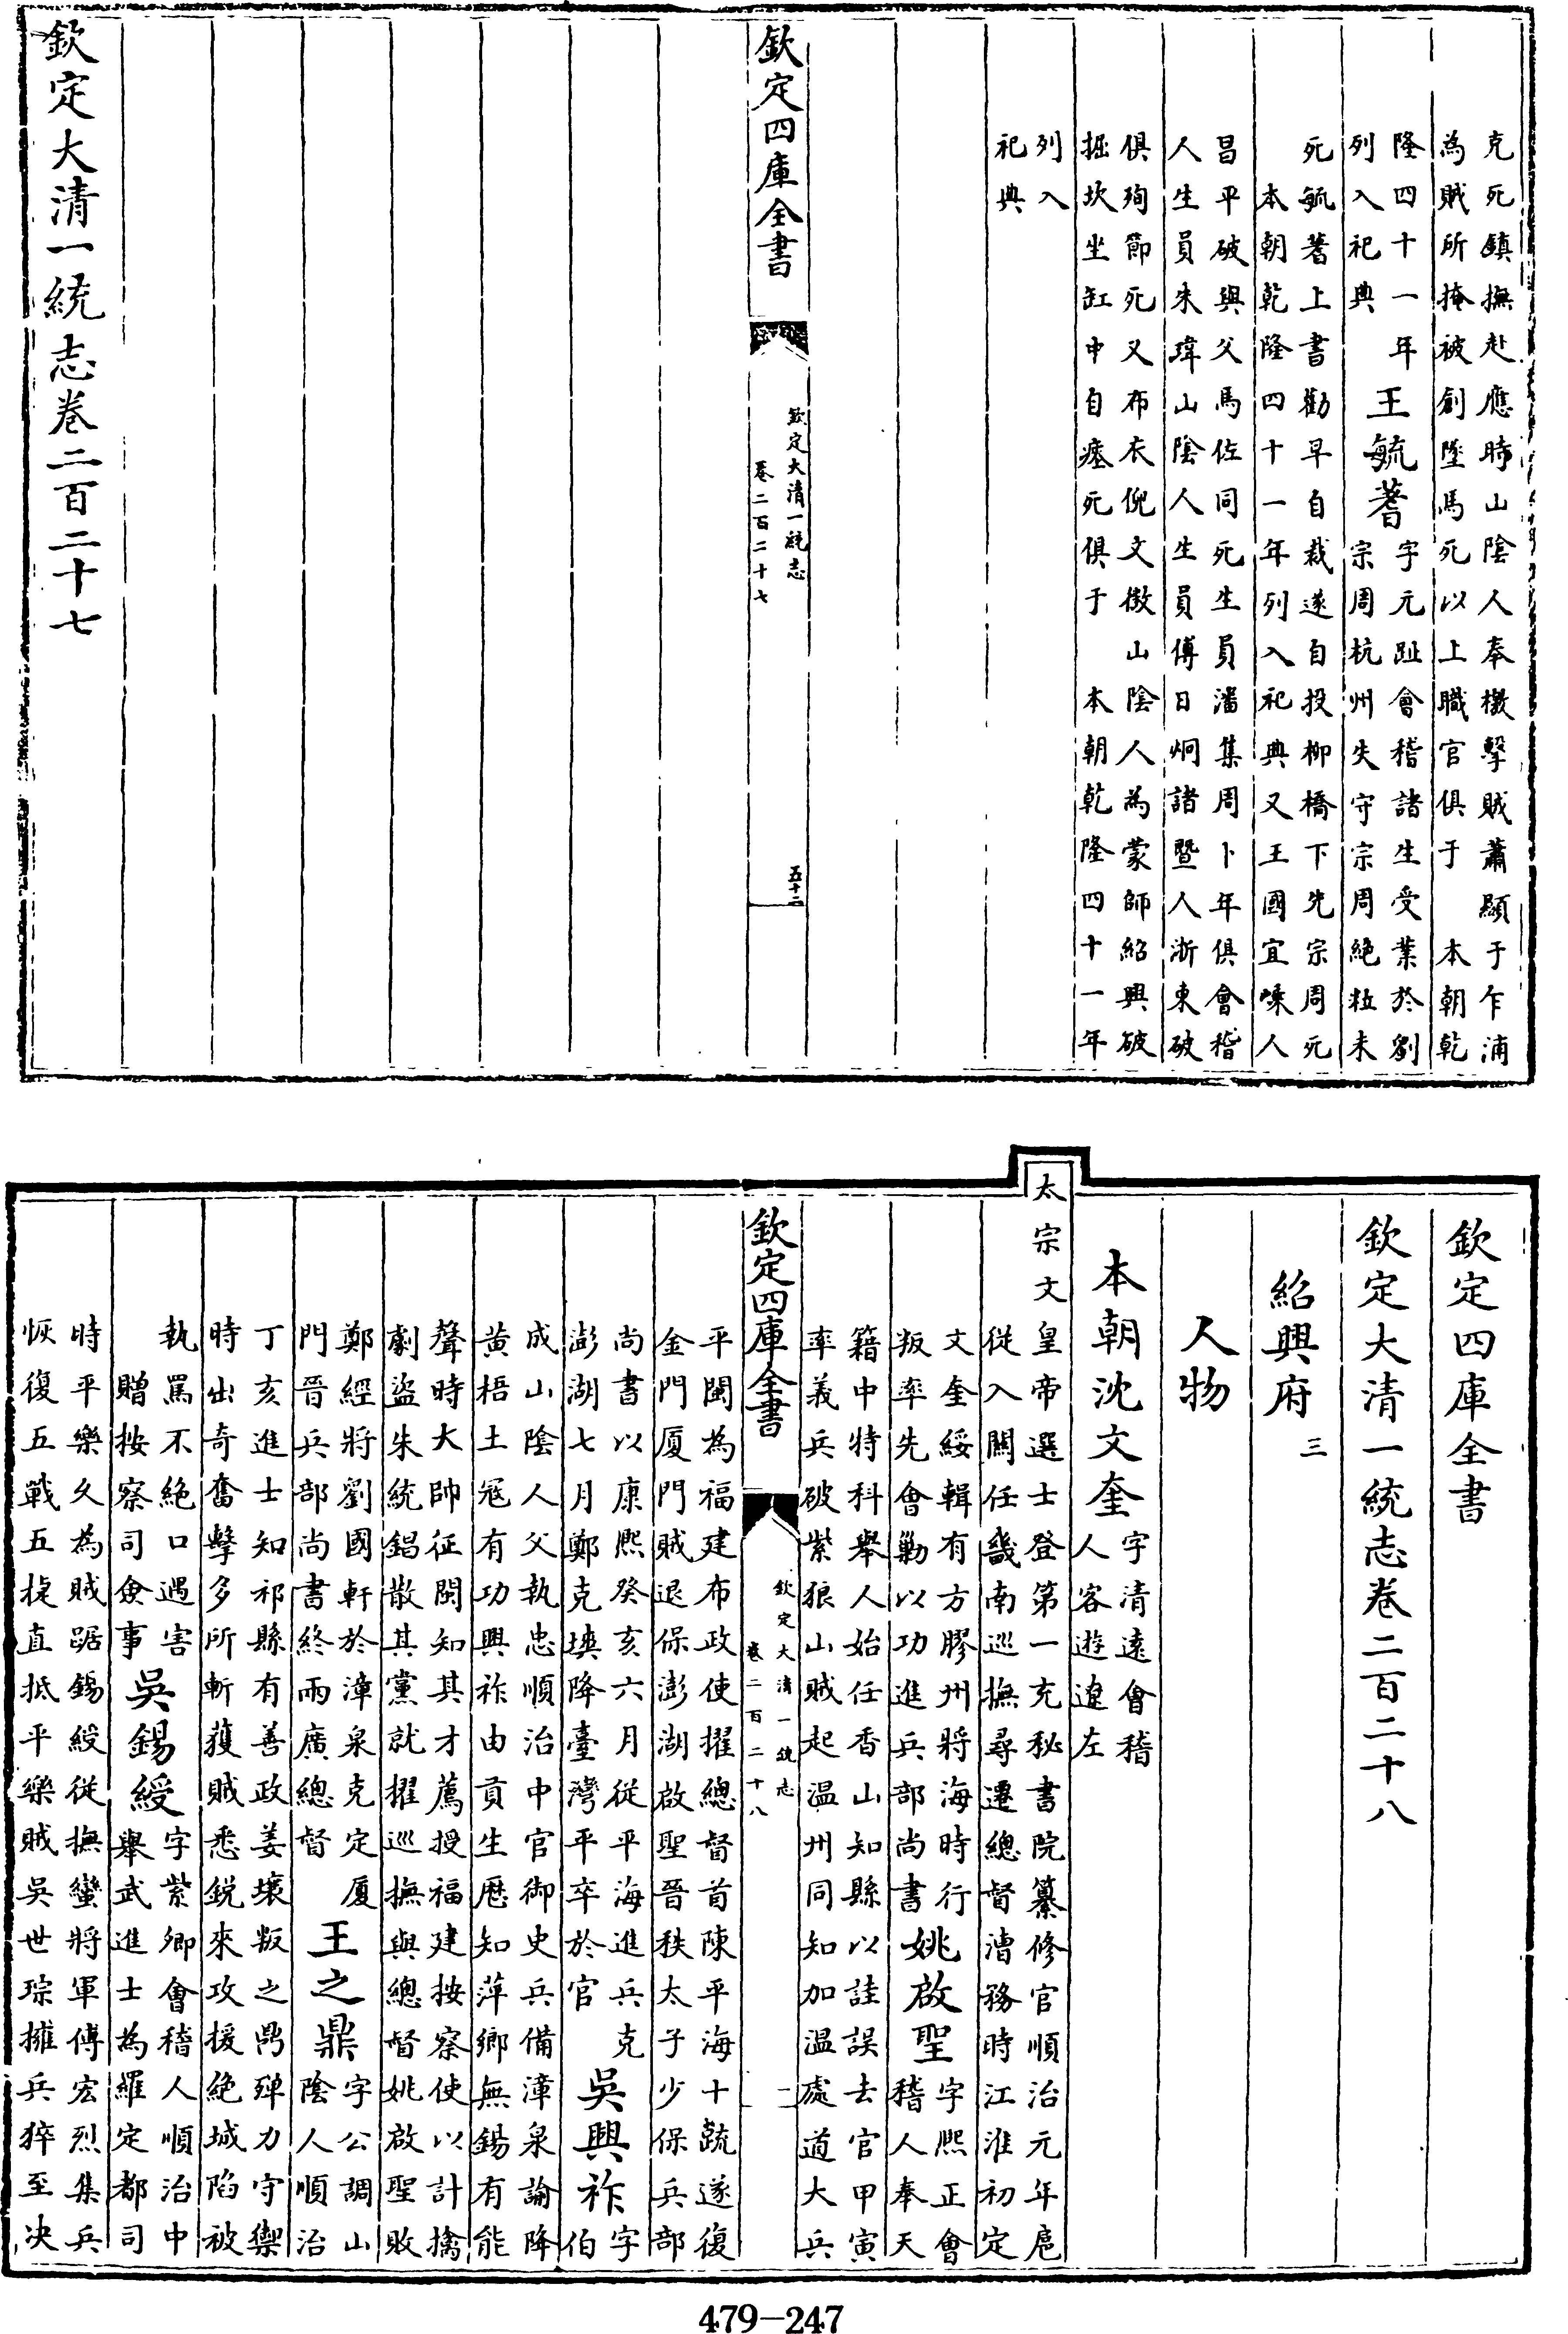 克死鎮撫赴應時山陰人奉檄擊賊蕭顯于乍浦
為賊所掩被創墜馬死以上職官俱于　本朝乾
隆四十一年
列入祀典
王毓蓍
字元趾會稽諸生受業於劉
宗周杭州失守宗周絶粒未
死毓蓍上書勸早自裁遂自投柳橋下先宗周死
本朝乾隆四十一年列入祀典又王國宜嵊人
昌平破與父馬佐同死生員潘集周卜年俱會稽
人生員朱瑋山陰人生員傅日炯諸暨人浙東破
俱殉節死又布衣倪文徵山陰人為蒙師紹興破
掘坎坐缸中自瘞死俱于　本朝乾隆四十一年
列入
祀典
欽定四庫全書
欽定大清一統志
卷二百二十七
五十二
欽定大清一統志卷二百二十七
欽定四庫全書
欽定大清一統志卷二百二十八
紹興府三
人物
本朝沈文奎
字清遠會稽
人客遊遼左
太宗文皇帝選士登第一充秘書院纂修官順治元年扈
從入關任畿南巡撫尋遷總督漕務時江淮初定
文奎綏輯有方膠州將海時行
叛率先會勦以功進兵部尚書
姚啟聖
字熙正會
稽人奉天
籍中特科舉人始任香山知縣以詿誤去官甲寅
率義兵破紫狼山賊起温州同知加温處道大兵
欽定四庫全書
欽定大清一統志
卷二百二十八
一
平閩為福建布政使擢總督首陳平海十疏遂復
金門厦門賊退保澎湖啟聖晉秩太子少保兵部
尚書以康熙癸亥六月從平海進兵克
澎湖七月鄭克塽降臺灣平卒於官
吳興祚
字
伯
成山陰人父執忠順治中官御史兵備漳泉論降
黄梧土冦有功興祚由貢生歷知萍鄉無錫有能
聲時大帥征閩知其才薦授福建按察使以計擒
劇盜朱統錩散其黨就擢巡撫與總督姚啟聖敗
鄭經將劉國軒於漳泉克定厦
門晉兵部尚書終兩廣總督
王之鼎
字公調山
陰人順治
丁亥進士知祁縣有善政姜壤叛之鼎殫力守禦
時出奇奮擊多所斬獲賊悉銳來攻援絶城陷被
執罵不絶口遇害
贈按察司僉事
吳錫綬
字紫卿會稽人順治中
舉武進士為羅定都司
時平樂久為賊踞錫綬從撫蠻將軍傅宏烈集兵
恢復五戰五捷直抵平樂賊吳世琮擁兵猝至決
479—247